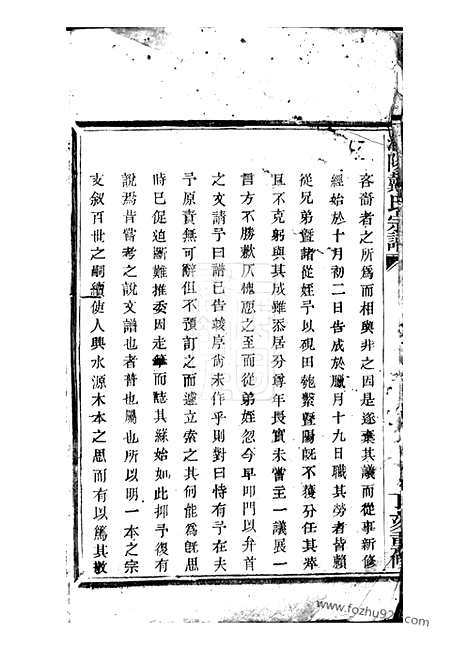 客嗇者之所為而相與非之因是逐棄其議而從事新修
經始於十月初二日告成於臘月十九日職其勞者皆賴
從兄弟暨諸從姪予以硯田匏繫暨陽旣不獲分任其瘁
且不克躬與其成雖忝居分尊年長實未嘗主一議展一
言方不勝歉仄愧恧之至而從弟姪忽今早叩門以弁首
之文請予曰譜已告竣序尚未作乎則對曰恃有予在夫
予原責無可辭但不預訂之而遽立索之其何能為旣思
時已促迫斷難推委因走筆而誌其緣始如此抑予復有
說焉昔嘗考之說文譜也者普也屬也所以明一本之宗
支敘百世之嗣續使人興水源木本之思而有以篤其敦
氏宗譜
重修
www.fozhu920.com